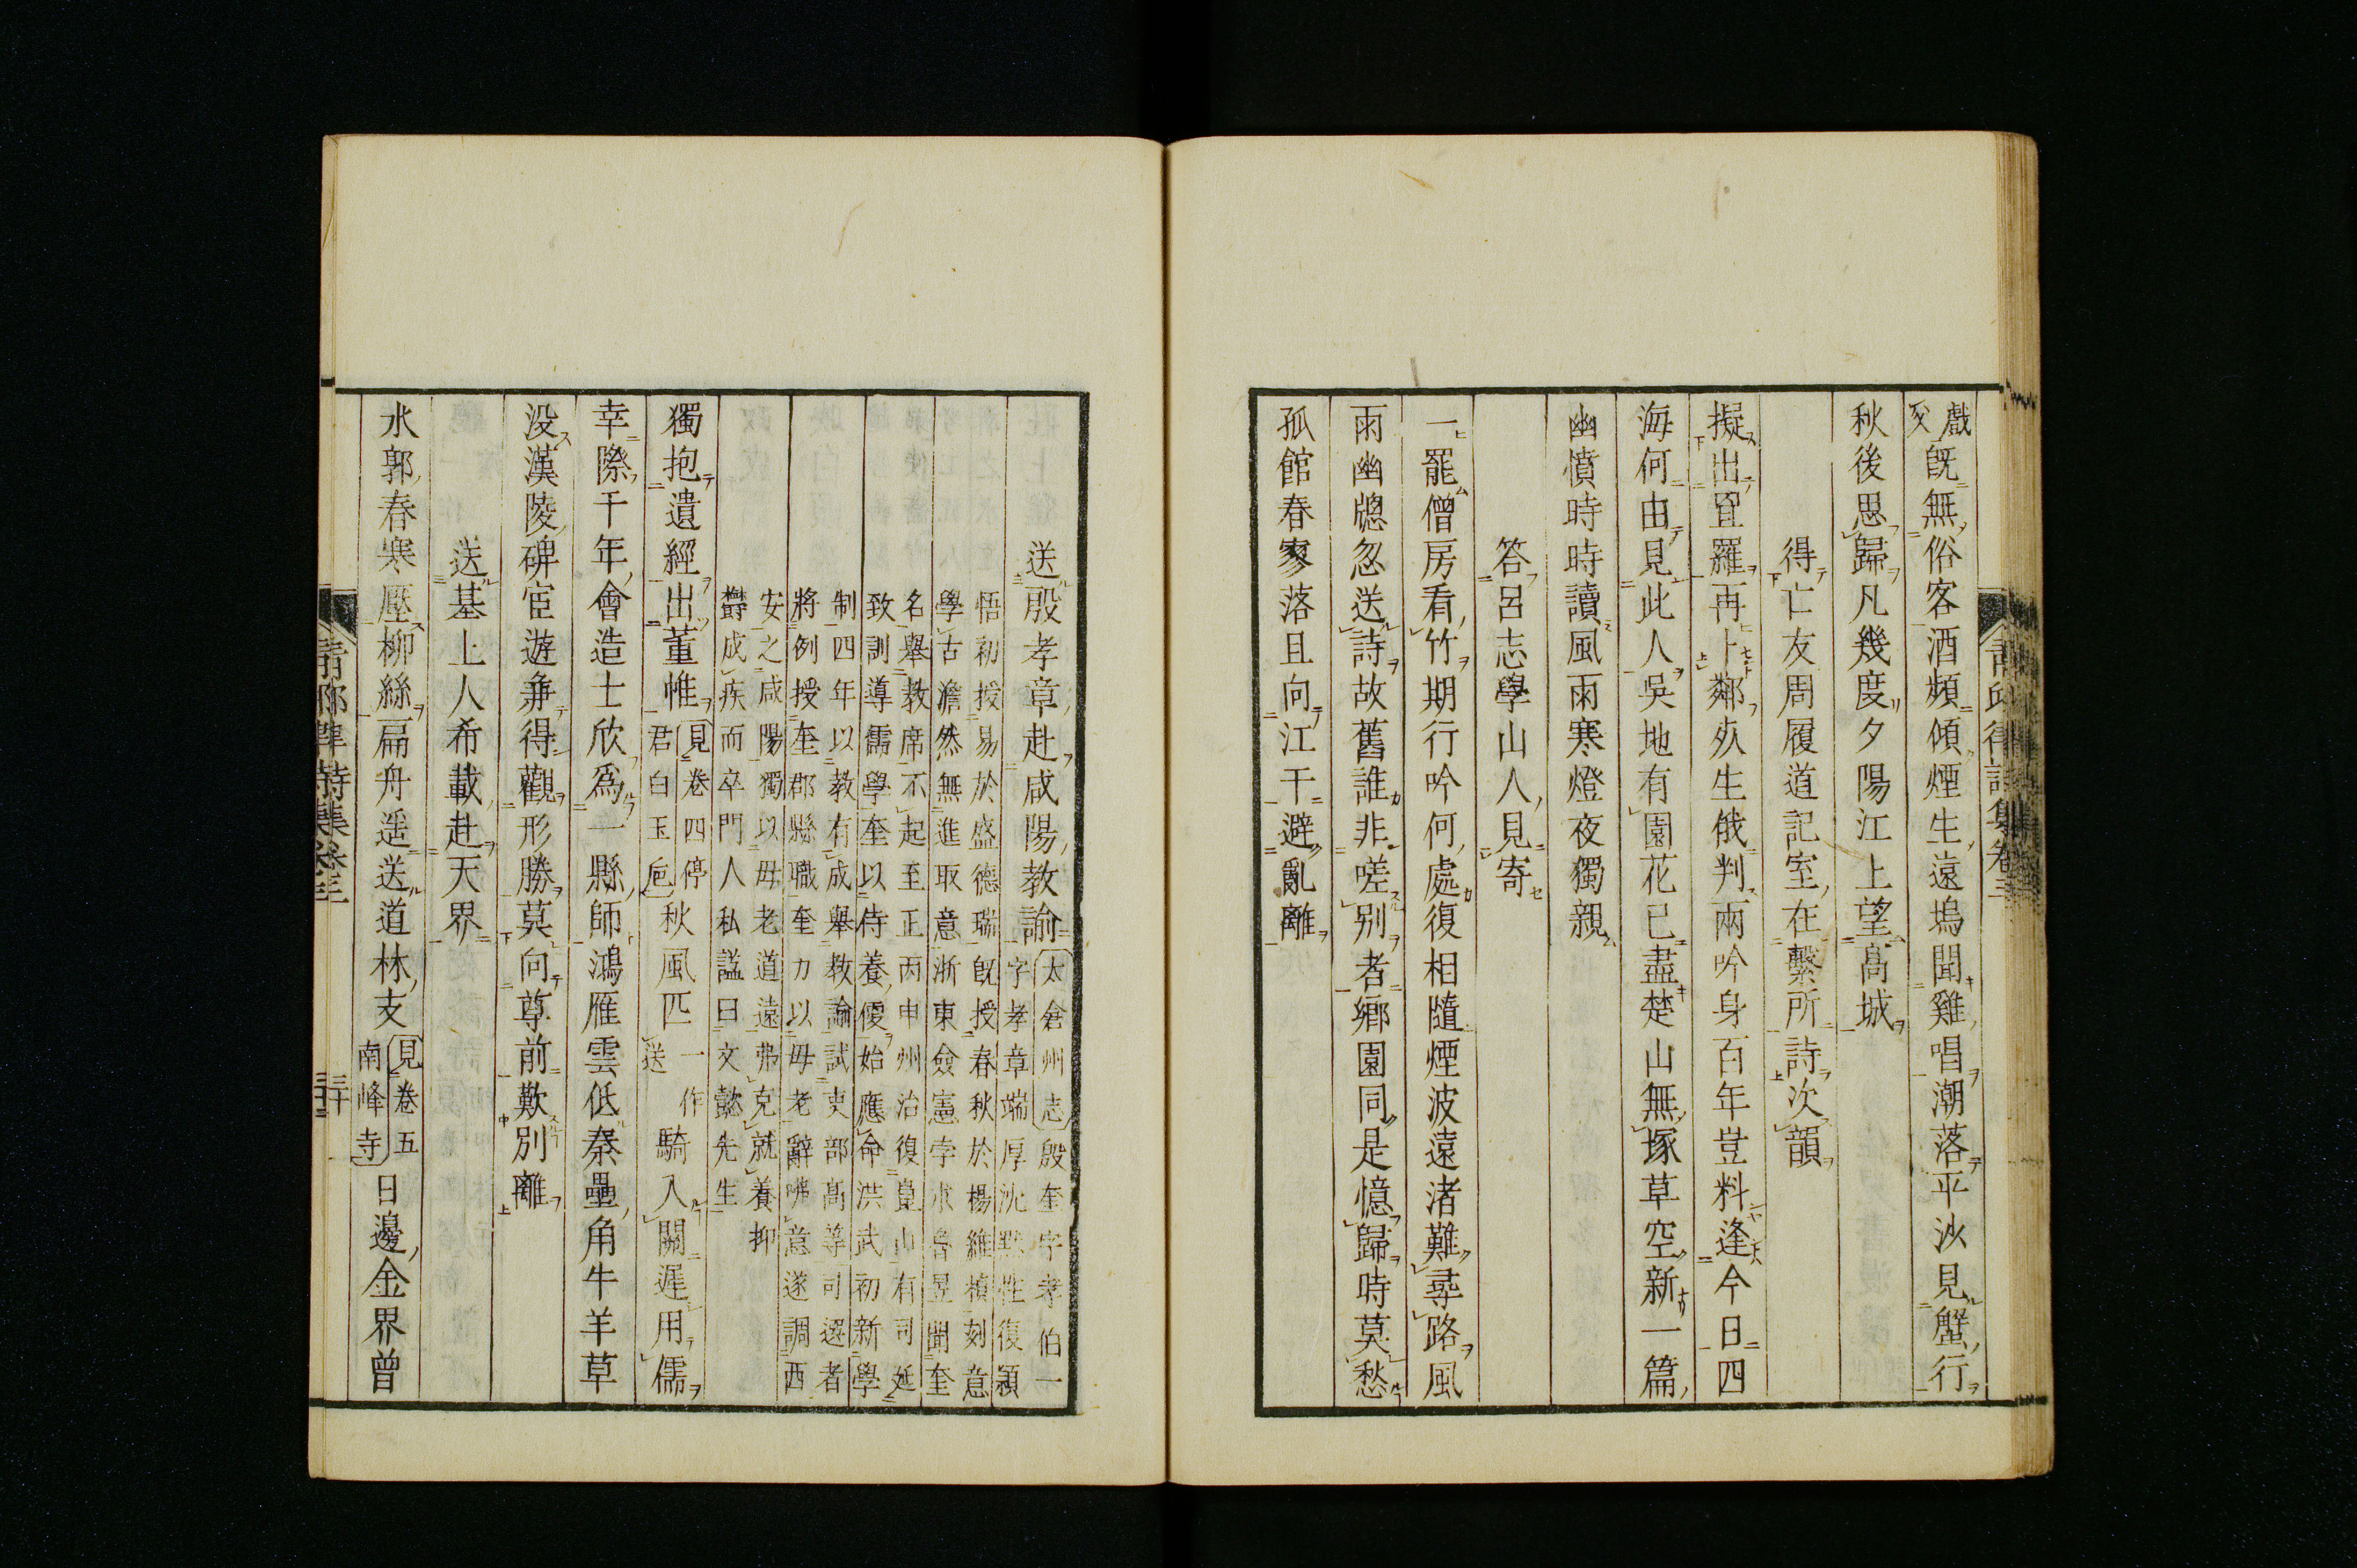 青邱律詩集卷三
戲
既無俗客酒頻傾煙生遠塢聞雞唱潮落平沙見蟹行
秋後思歸凡幾度夕陽江上望髙城
得亡友周履道記室在繫所詩次韻
擬出罝羅再卜鄰死生俄判兩吟身百年豈料逢今日四
海何由見此人吳地有園花已盡楚山無塚草空新一篇
幽憤時時讀風雨寒燈夜獨親
答呂志學山人見寄
一罷僧房看竹期行吟何處復相隨煙波遠渚難尋路風
雨幽牕忽送詩故舊誰非嗟别者鄉園同是憶歸時莫愁
孤館春寥落且向江干避亂離
送殷孝章赴咸陽教諭
太倉州志殷奎字孝伯一
字孝章端厚沈默性復穎
悟初授易於盛德瑞旣授春秋於楊維楨刻意
學古澹然無進取意浙東僉憲孛朮魯昱聞奎
名舉教席不起至正丙申州治復崑山有司延
致訓導儒學奎以侍養優始應命洪武初新學
制四年以教有成舉教諭試吏部髙等司選者
將例授奎郡縣職奎力以母老辭咈意遂調西
安之咸陽獨以母老道遠弗克就養抑
欝成疾而卒門人私謚曰文懿先生
獨抱遺經出董帷見卷四停君白玉巵秋風匹一作送騎入關遲用儒
幸際千年會造士欣爲一縣師鴻雁雲低秦壘角牛羊草
没漢陵碑宦遊兼得觀形勝莫向尊前歎別離
送基上人希載赴天界
水郭春寒壓柳絲扁舟遥送道林支見卷五南峰寺日邊金界曾
青邱律詩集卷三